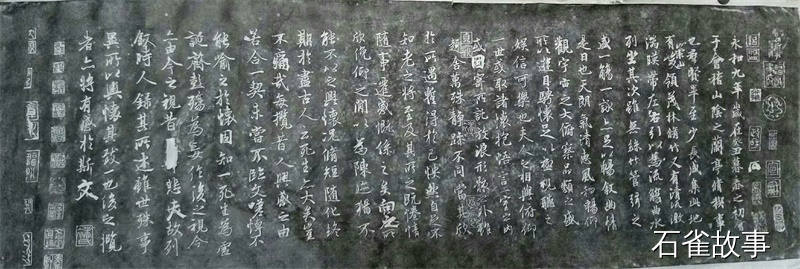 永和九年歲在癸丑暮春之初會
于會稽山陰之蘭亭脩稧事
也羣賢畢至少長咸集此地
有崇山峻領茂林脩竹又有清流激
湍暎帶左右引以為流觴曲水
列坐其次雖無絲竹管弦之
盛一觴一詠亦足以暢敘幽情
是日也天朗氣清惠風和暢仰
觀宇宙之大俯察品類之盛
所以遊目騁懷足以極視聽之
娛信可樂也夫人之相與俯仰
一世或取諸懷抱悟言一室之內
或因寄所託放浪形骸之外雖
趣舍萬殊靜躁不同當其欣
於所遇暫得於己怏然自足不
知老之將至及其所之既惓情
隨事遷感慨係之矣向之所
欣俛仰之閒以為陳跡猶不
能不以之興懷況脩短隨化終
期於盡古人云死生亦大矣豈
不痛哉每攬昔人興感之由
若合一契未嘗不臨文嗟悼不
能喻之於懷固知一死生為虛
誕齊彭殤為妄作後之視今
亦由今之視昔悲夫故列
敘時人錄其所述雖世殊事
異所以興懷其致一也後之攬
者亦將有感於斯文
石雀故事